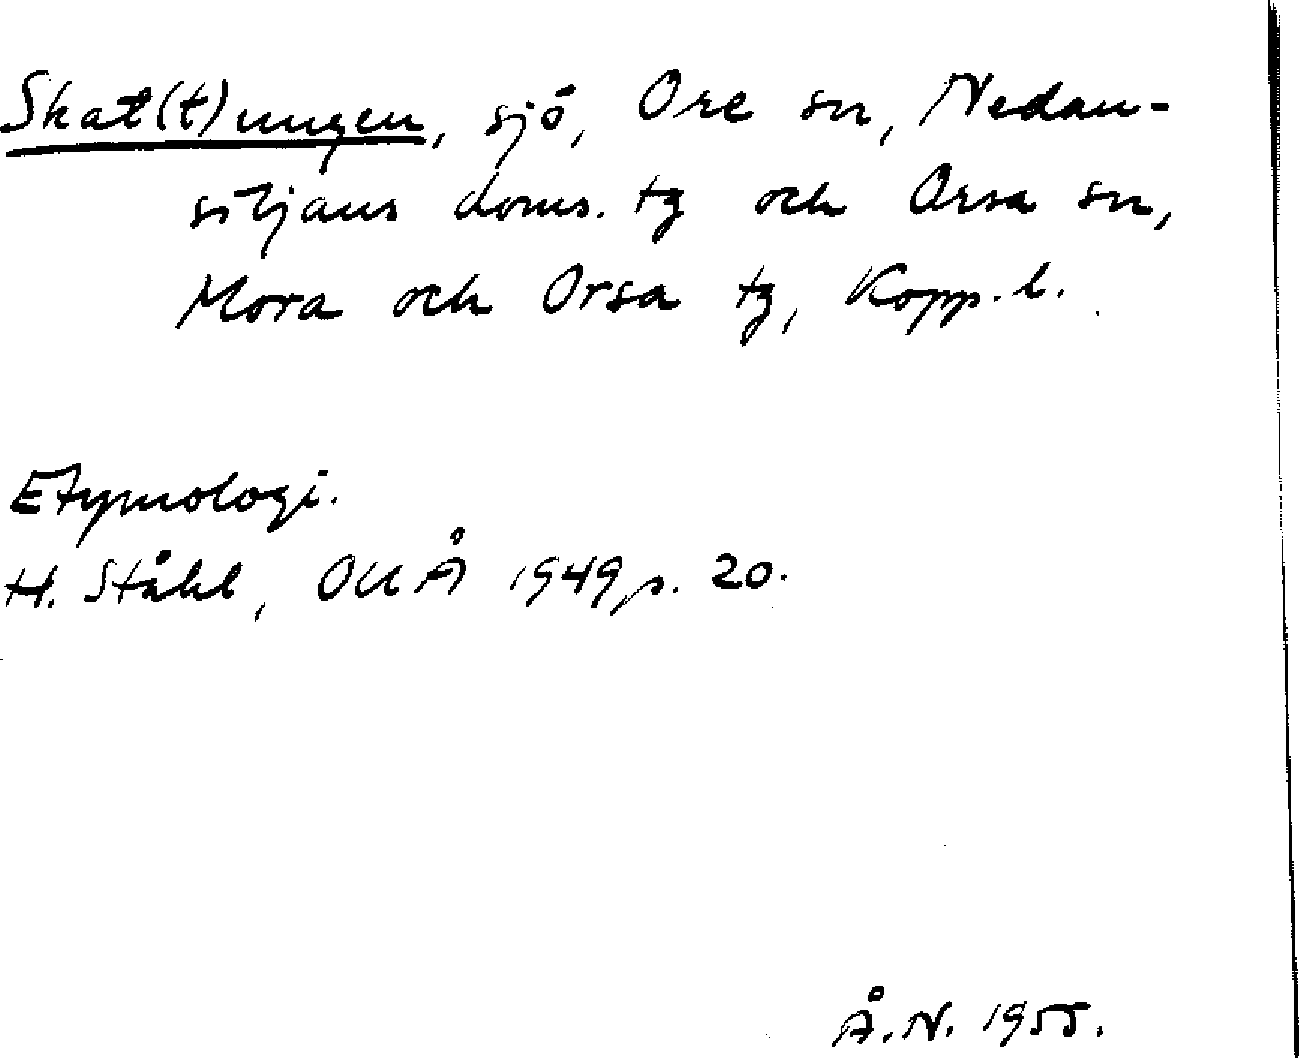 Skat(t)ungen, sjö, Ore sn, Nedan-
siljans doms. tg och Orsa sn,
Mora och Orsa tg, Kopp. l.
Etymologi.
H. Ståhl, OUÅ 1949 p. 20.
Å.N. 1955.